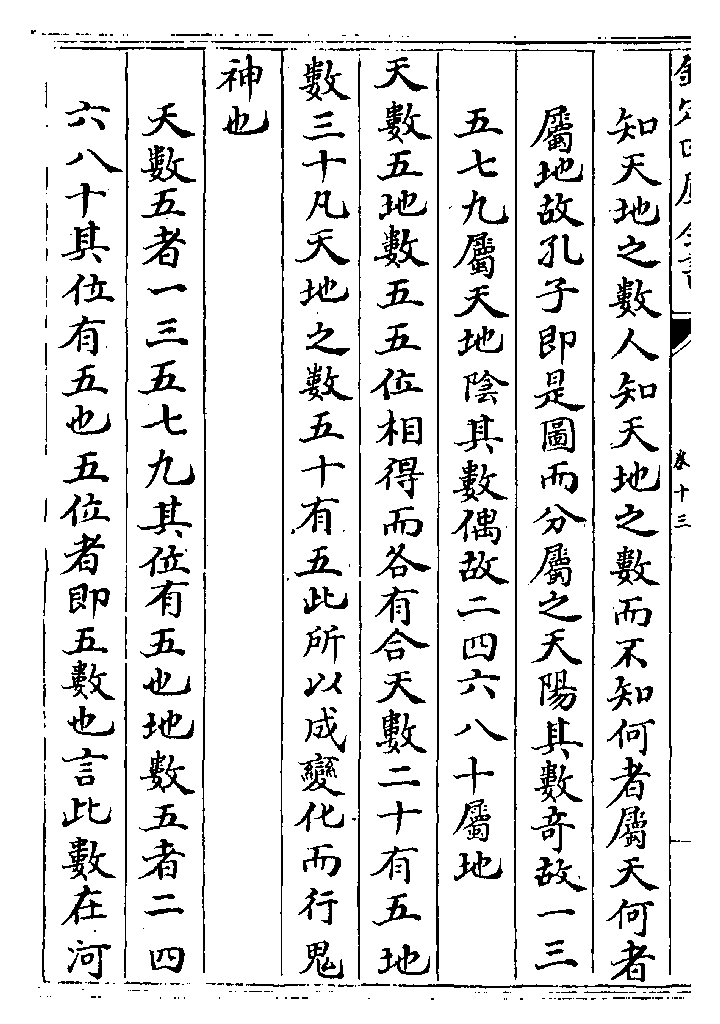 欽定四庫全書
卷十三
知天地之數人知天地之數而不知何者屬天何者
屬地故孔子即是圖而分屬之天陽其數竒故一三
五七九屬天地陰其數偶故二四六八十屬地
天數五地數五五位相得而各有合天數二十有五地
數三十凡天地之數五十有五此所以成變化而行鬼
神也
天數五者一三五七九其位有五也地數五者二四
六八十其位有五也五位者即五數也言此數在河